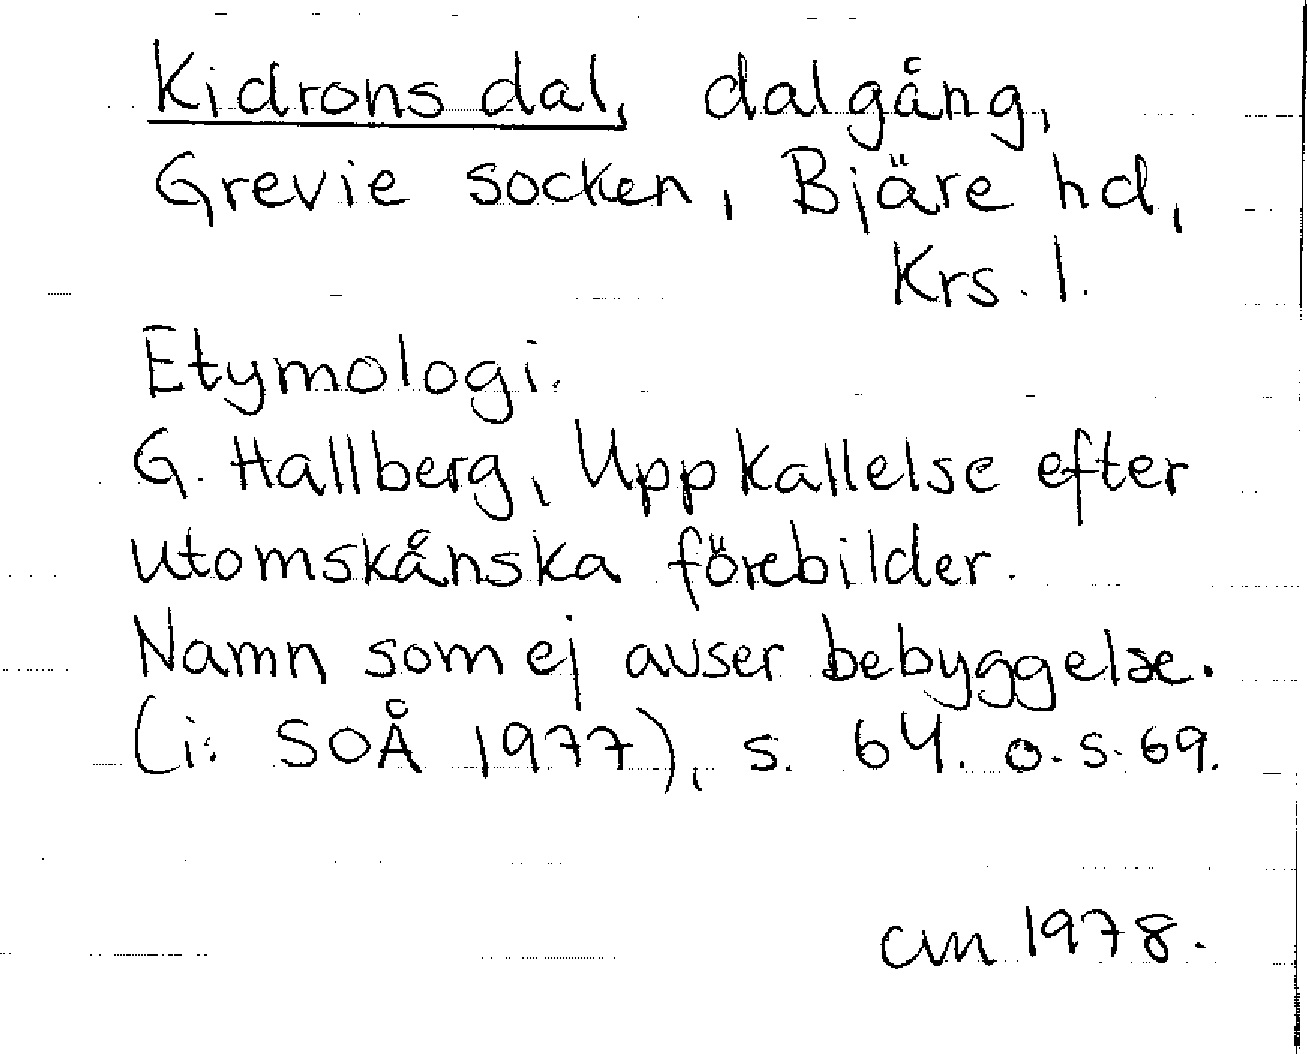 Kidrons dal, dalgång,
Grevie socken, Bjäre hd,
Krs. l.
Etymologi.
G. Hallberg, Uppkallelse efter
utomskånska förebilder.
Namn som ej avser bebyggelse.
(i: SOÅ 1977), s. 64. o. s. 69.
cm 1978.